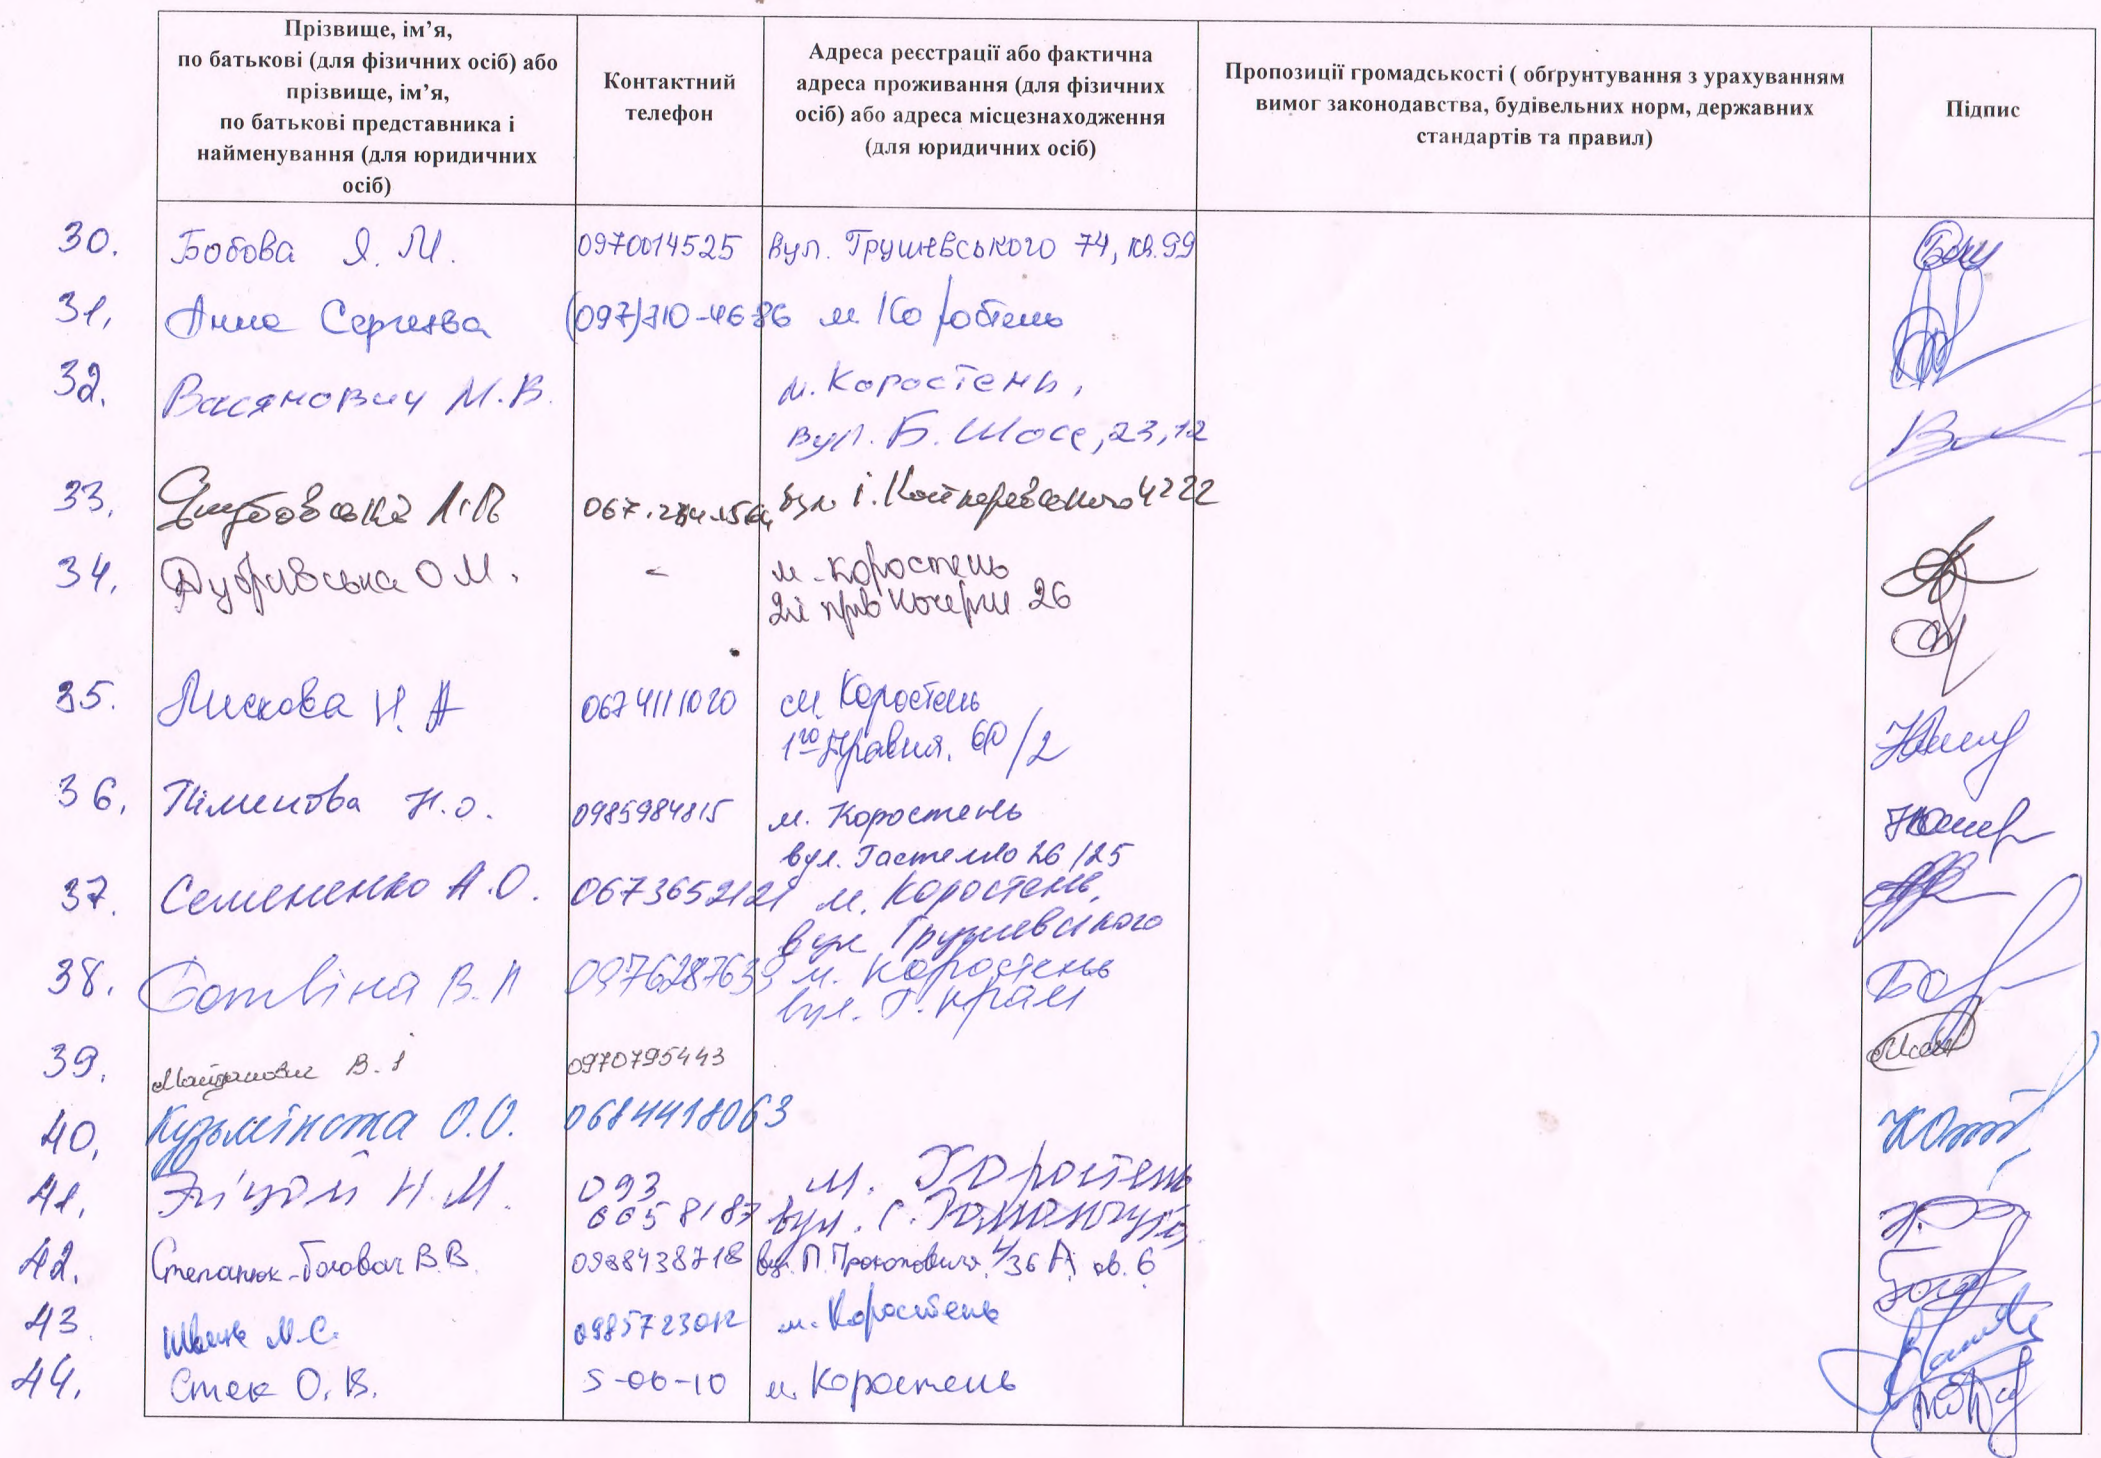 Прізвище, ім’я,
по батькові (для фізичних осіб) або
прізвище, ім’я,
по батькові представника і
найменування (для юридичних
осіб)
Контактний
телефон
Адреса реєстрації або фактична
адреса проживання (для фізичних
осіб) або адреса місцезнаходження
(для юридичних осіб)
Пропозиції громадськості ( обґрунтування з урахуванням
вимог законодавства, будівельних норм, державних
стандартів та правил)
Підпис
30. Бобова Я. М. 0970014525 вул. Грушевського 74, кв.99
31. Анна Сергеева (097)710-46-86 м Коробтень
32. Васянович М.В. м. Коростень,
вул. Б. Шосе, 23, 12
33. 067 вул І.
34. Дубрівська О М. - м. Коростень
2й пров Кочерги 26
35. Лискова Н. А 0674111020 см. Коростень
1го Травня. 60/2
36. Піменова Н.О. 0985984815 м. Коростень
вул. Гастелло 26/25
37. Семененко А.О. 0673652121 м. Коростень,
вул Грушевського
38. Ботвіна В. П 0976287639 м. Коростень
вул.
39. Майданович В. І 0970795443
40. О.О. 0684418063
41. Н. М. 093 м. Коростень
6658187 вул. С.
42. Степанюк-Боговач В.В. 0988438718 вул. П. Прокоповича, 36 А, кв. 6
43. М.С. 0985723012 м. Коростень
44. Стек О. В. 5-06-10 м. Коростень